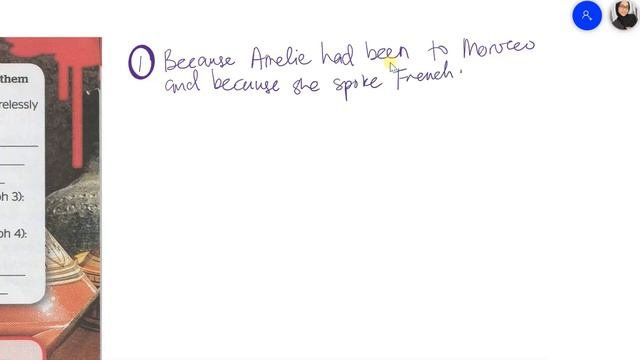 them
relessly
ph 3):
ph 4):
1 Because Amelie had been to Morocco
and because she spoke French.